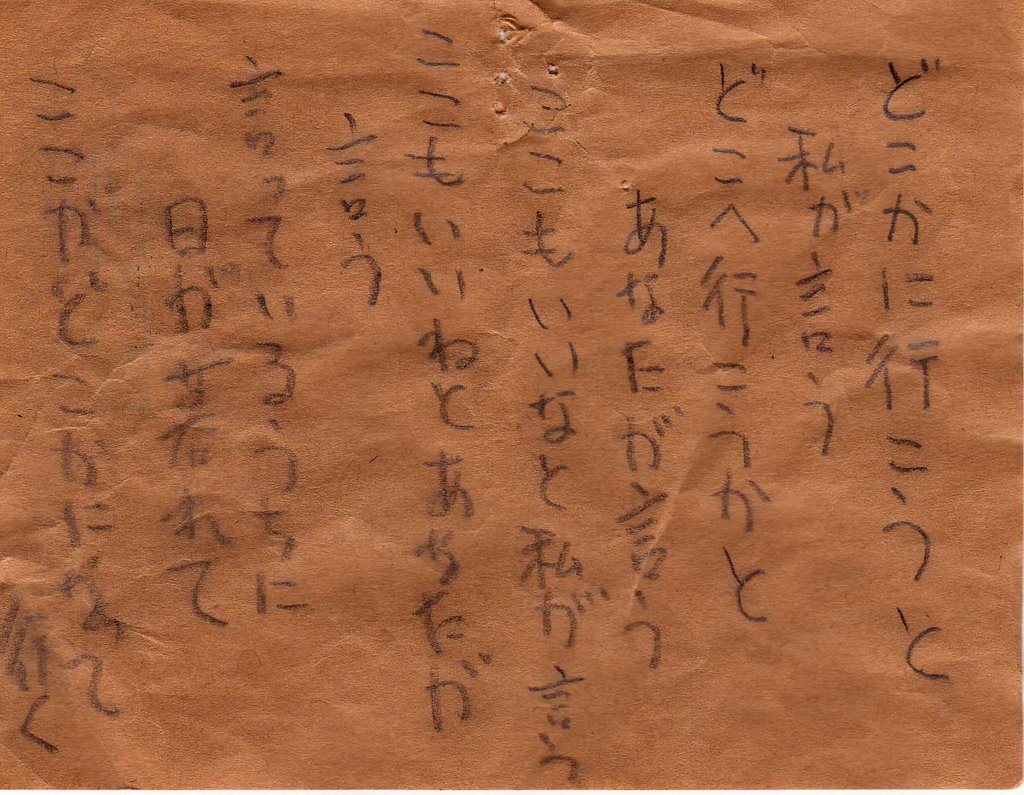 どこかに行こうと
私が言う
どこへ行こうかと
あなたが言う
ここもいいなと私が言う
ここもいいねとあなたが
言う
言っているうちに
日が暮れて
ここがどこかになって
行く